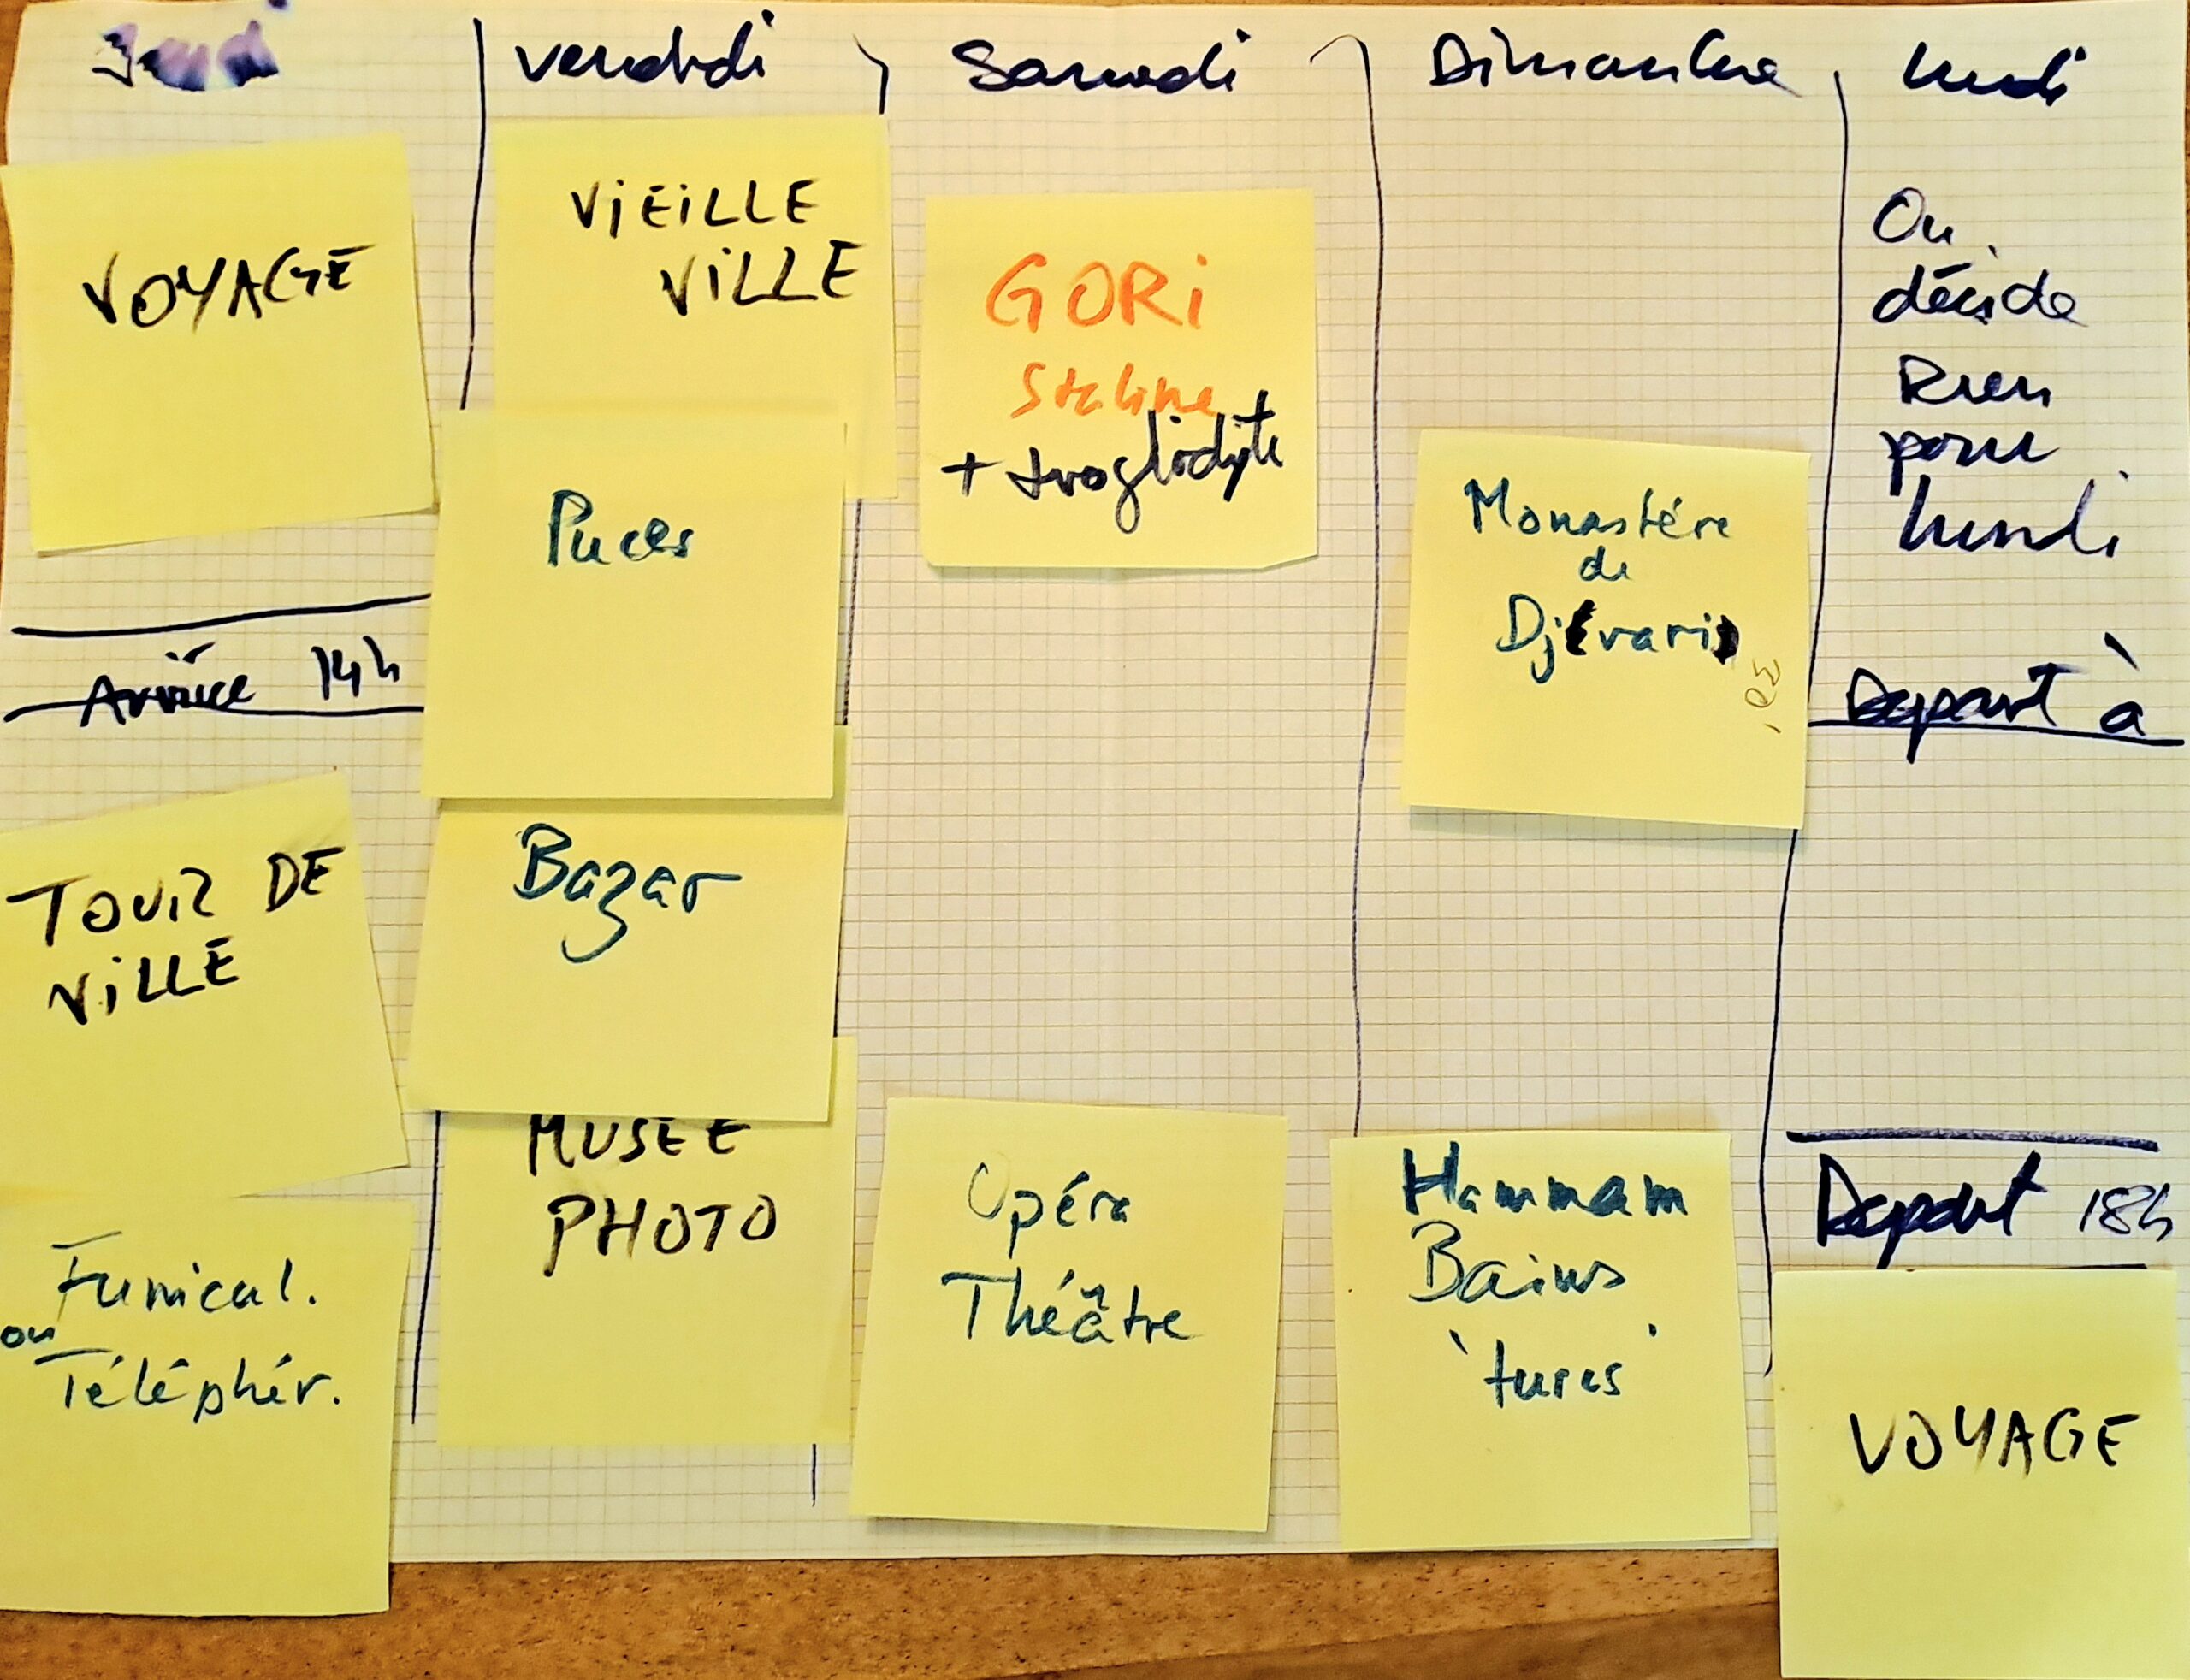 Jeudi
VOYAGE
Arrivée 14h
TOUR DE
VILLE
Funical.
ou
Téléphér.
Vendredi
VIEILLE
VILLE
Puces
Bazar
MUSEE
PHOTO
Samedi
GORI
Staline
+ troglodyte
Opéra
Théâtre
Dimanche
Monastère
de
Djévaris
Hammam
Bains
'turcs'
lundi
On
décide
Rien
pour
lundi
Depart à
Depart 18h
VOYAGE